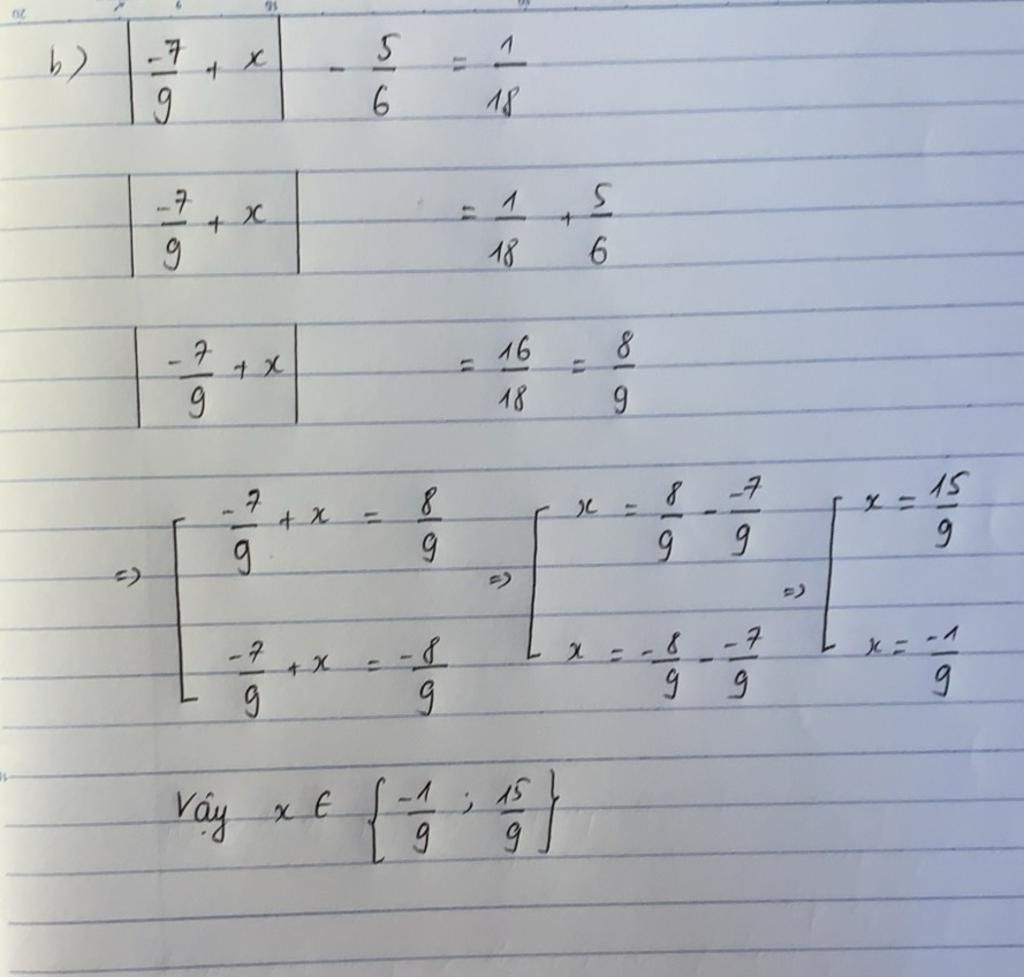 b) |-7/9 + x| - 5/6 = 1/18
|-7/9 + x| = 1/18 + 5/6
|-7/9 + x| = 16/18 = 8/9
=> [ -7/9 + x = 8/9 => [ x = 8/9 - -7/9 => [ x = 15/9
-7/9 + x = -8/9 x = -8/9 - -7/9 x = -1/9
Vậy x ∈ {-1/9 ; 15/9}